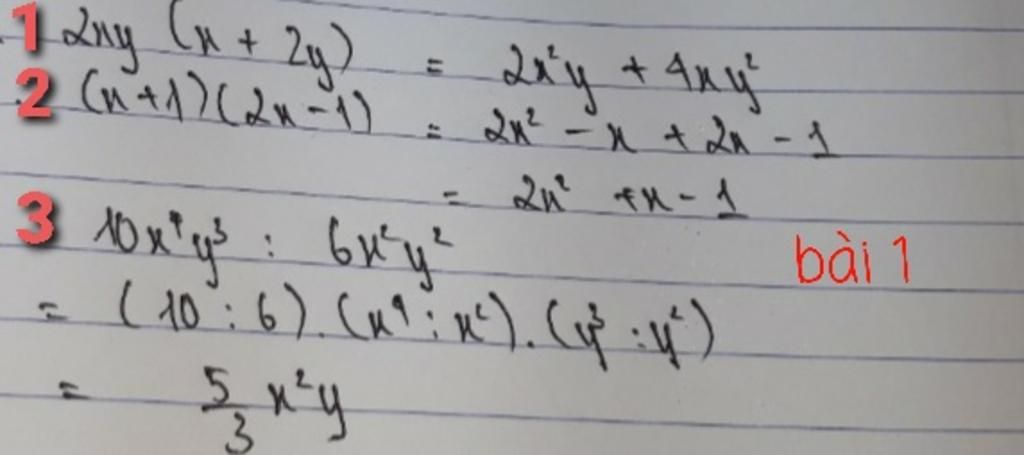 1 2xy (x + 2y) = 2x²y + 4xy²
2 (x+1)(2x-1) = 2x² - x + 2x - 1
= 2x² + x - 1
3 10x⁴y³ : 6x²y²
bài 1
= (10 : 6) . (x⁴ : x²) . (y³ : y²)
= 5/3 x²y